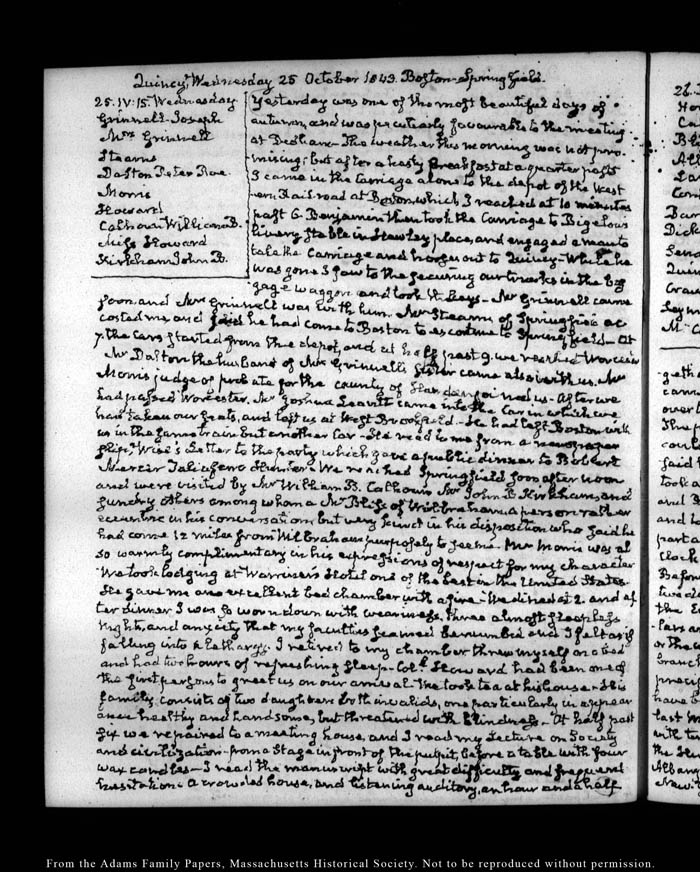 Quincy, Wednesday 25 October 1843. Boston - Springfield.
25. IV: 15. Wednesday
Grinnell Joseph
Mrs Grinnell
Stearns
Dalton Peter Roe.
Morris
Howard
Calhoun William B.
Miss Howard
Kirkham John B.
Yesterday was one of the most beautiful days of
autumn, and was peculiarly favourable to the meeting
at Dedham. The weather this morning was not pro-
mising; but after a hasty breakfast at a quarter past
5 came in the Carriage alone to the depot of the West
ern Rail road at Boston, which I reached at 10 minutes
past 6. Benjamin then took the Carriage to Bigelow's
livery stable in Hawley place, and engaged a man to
take the Carriage and horses out to Quincy - While he
was gone I saw to the securing our trunks in the bag
gage waggon and took the keys - Mr Grinnell came
soon, and Mrs Grinnell was with him. Mr Stearns of Springfield ac
costed me, and said he had come to Boston to escort me to Springfield - At
7. the cars started from the depot, and at half past 9. we reached Worcester
Mr Dalton the husband of Mrs Grinnell's sister came also with us. Mr
Morris judge of probate for the county of Hampden joined us - After we
had passed Worcester, Mr Joshua Leavitt came into the car in which we
had taken our seats, and left us at West Brookfield - He had left Boston with
us in the same train but another car - He read to me from a newspaper
slip, Wise's Letter to the party which gave a public dinner to Robert
Mercer Taliaferro Hunter. We reached Springfield soon after noon
and were visited by Mr William B. Calhoun Mr John B. Kirkham, and
sundry others among whom a Mr Bliss of Wilbraham, a person rather
eccentric in his conversation, but very kind in his disposition who said he
had come 12 miles from Wilbraham purposely to see me. Mr Morris was al
so warmly complimentary in his expressions of respect for my character
We took lodging at Warriner's Hotel one of the best in the United States
He gave me an excellent bed chamber with a fire - We dined at 2. and af
ter dinner I was so worn down with weariness, three almost sleepless
nights, and anxiety that my faculties seemed benumbed and I felt as if
falling into a lethargy. I retired to my chamber threw myself on a bed
and had two hours of refreshing sleep - Colo. Howard had been one of
the first persons to greet us on our arrival. We took tea at his house - His
family consists of two daughters both invalids, one particularly in appear
ance healthy and handsome, but threatened with blindness - At half past
six we repaired to a meeting house, and I read my Lecture on Society
and civilization - from a Stage in front of the pulpit, before a table with four
wax candles - I read the manuscript with great difficulty and frequent
hesitation: a crowded house, and listening auditory, an hour and a half
From the Adams Family Papers, Massachusetts Historical Society. Not to be reproduced without permission.